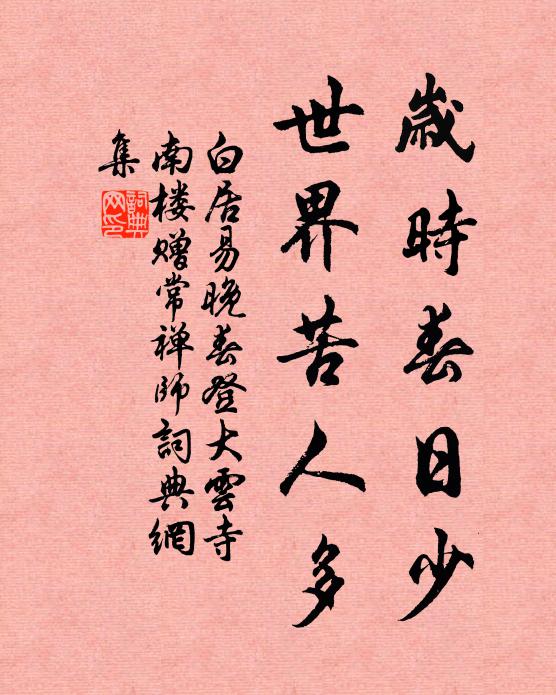 歲時春日少
世界苦人多
白居易晚春登大雲寺
南楼赠常禅师詞典網
集
詞典
网印